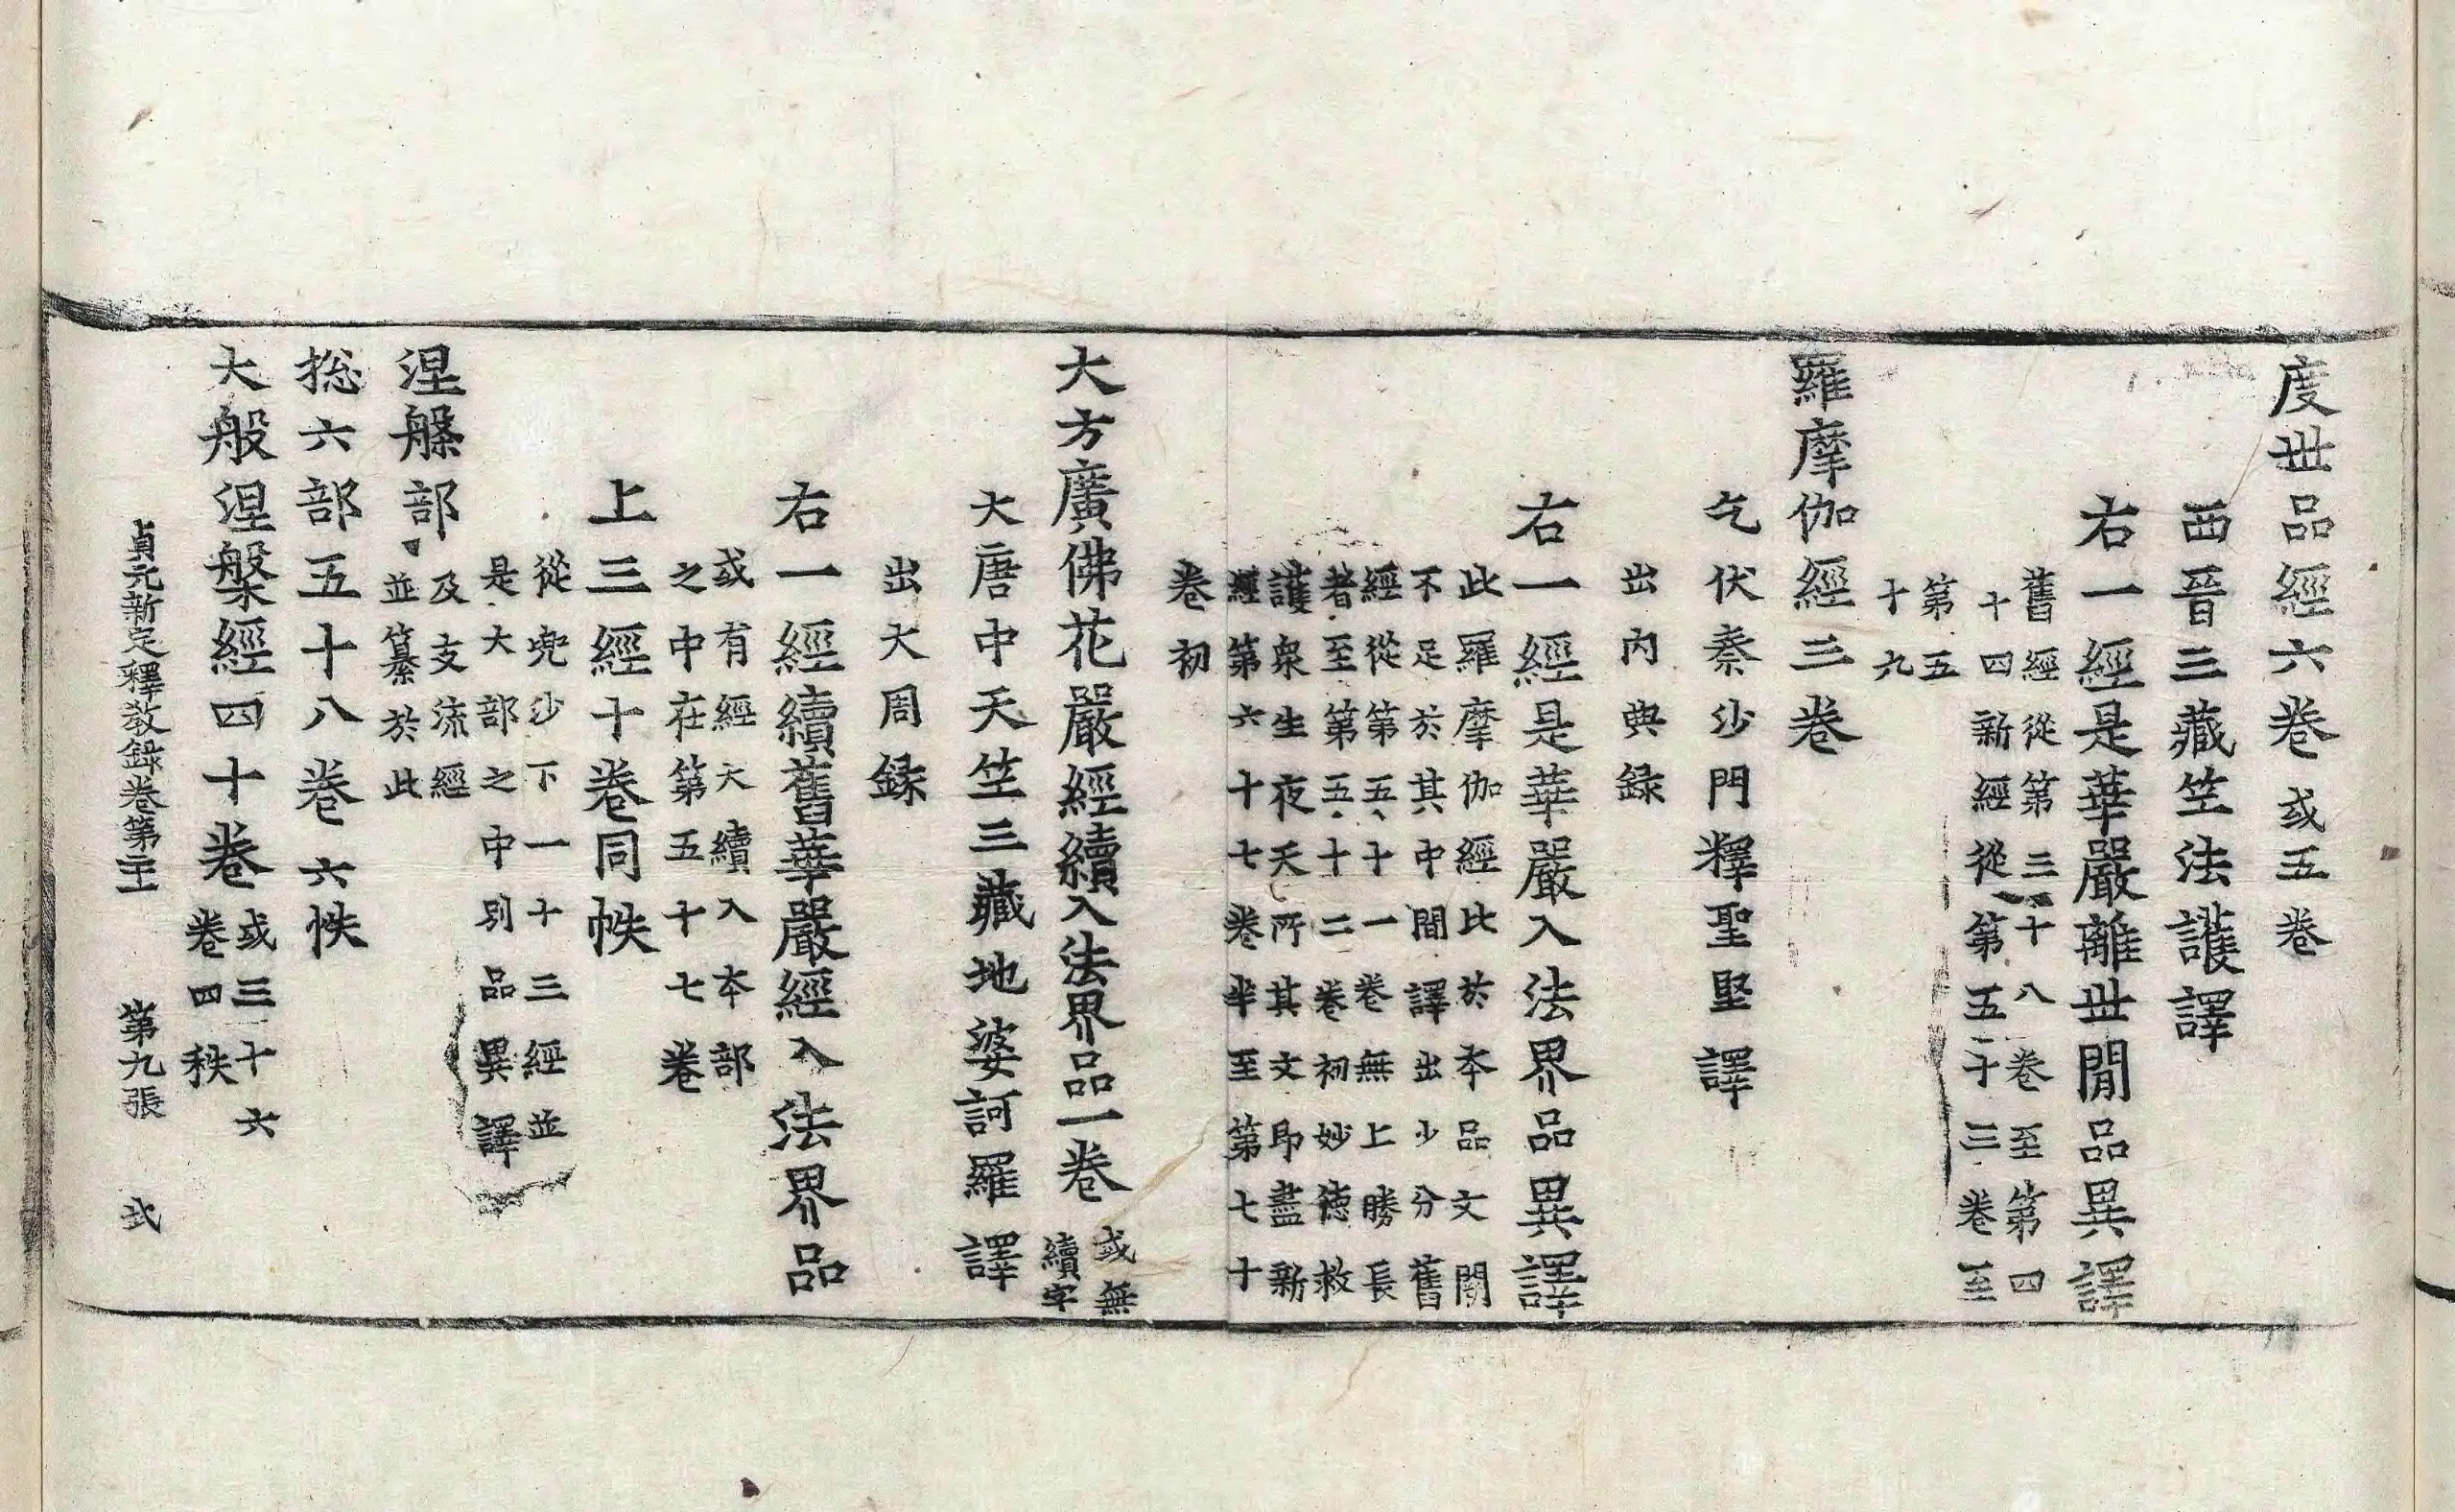 度世品經六卷或五卷
西晉三藏竺法護譯
右一經是華嚴離世閒品異譯
舊經從第三十八卷至第四
十四新經從第五十三卷至
第五
十九
羅摩伽經三卷
乞伏秦沙門釋聖堅譯
出內典録
右一經是華嚴入法界品異譯
此羅摩伽經比於本品文閒
不足於其中間譯出少分舊
經從第五十一卷無上勝長
者至第五十二卷初妙德救
護衆生夜天所其文即盡新
經第六十七卷半至第七十
卷初
大方廣佛花嚴經續入法界品一卷
或無
續字
大唐中天竺三藏地婆訶羅譯
出大周録
右一經續舊華嚴經入法界品
或有經大續入本部
之中在第五十七卷
上三經十卷同帙
從兜沙下一十三經並
是大部之中別品異譯
涅槃部
及支流經
並纂於此
捴六部五十八卷六帙
大般涅槃經四十卷
或三十六
卷四秩
貞元新定釋教録卷第二十 第九張 弍